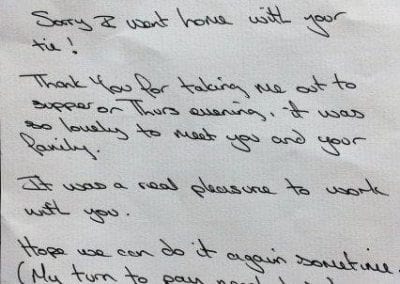 Sorry I went home with your
tie!
Thank You for taking me out to
supper on Thurs evening, it was
so lovely to meet you and your
family.
It was a real pleasure to work
with you.
Hope we can do it again sometime.
(My turn to pay next